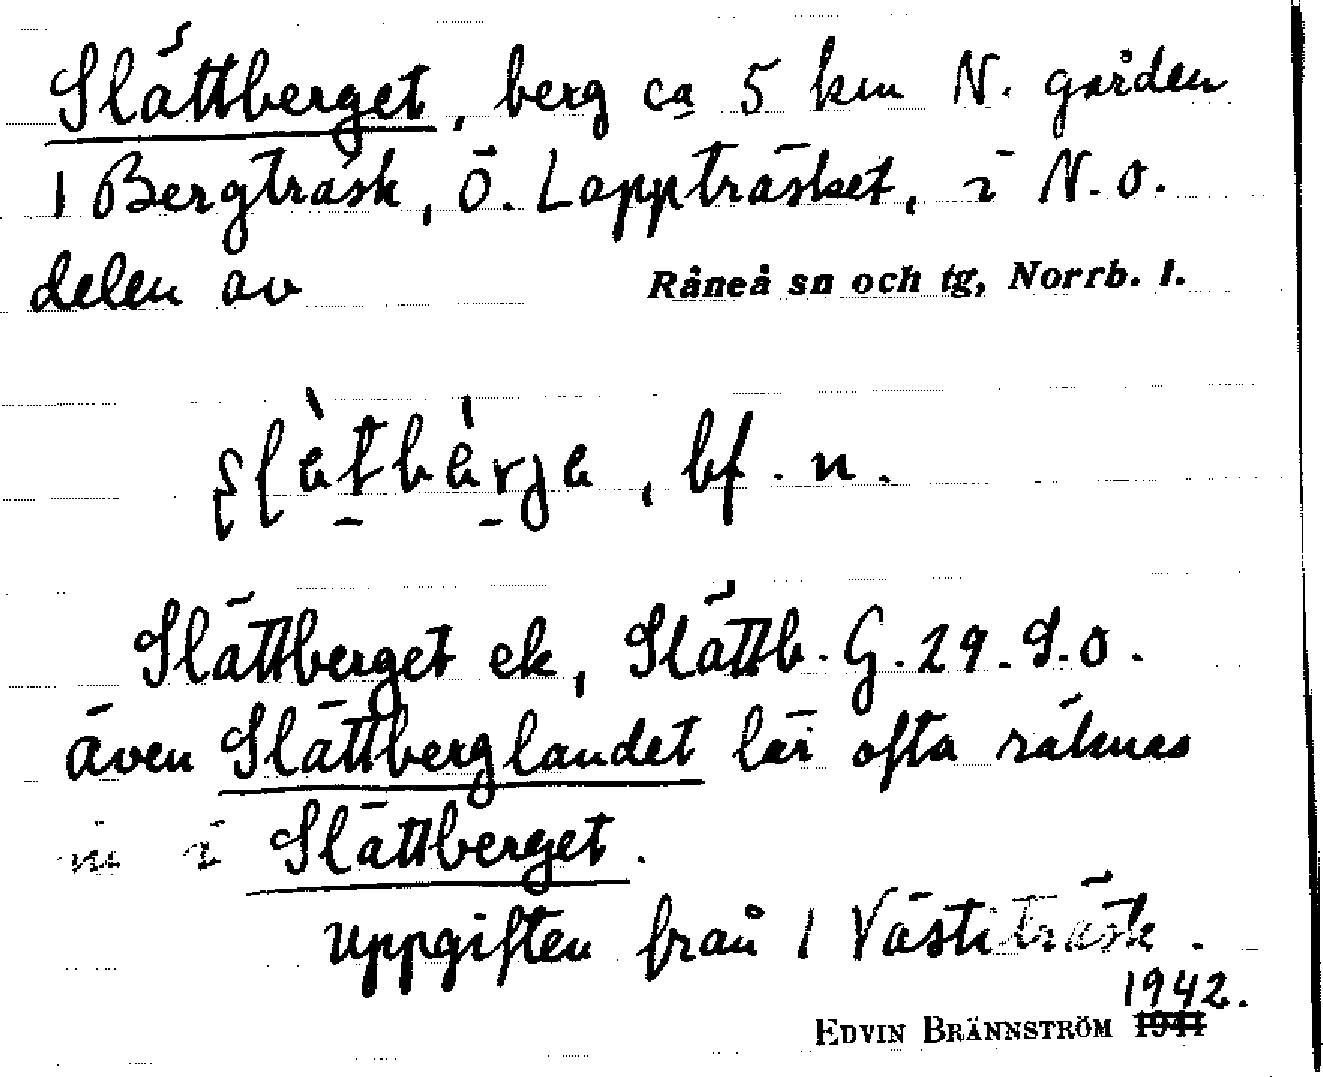 Slättberget, berg ca 5 km N. gården
1 Bergträsk, Ö. Lappträsket, i N.O.
delen av Råneå sn och tg, Norrb. l.
bf. n.
Slättberget ek, Slättb. G. 29. S.O.
även Slättberglandet lär ofta räknas
in i Slättberget.
Uppgiften från 1 Västiträsk.
1942.
EDVIN BRÄNNSTRÖM 1941